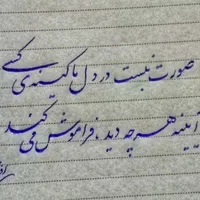 صورت نبست در دل ما کینه‌ی کسی
آیینه هرچه دید، فراموش می کند